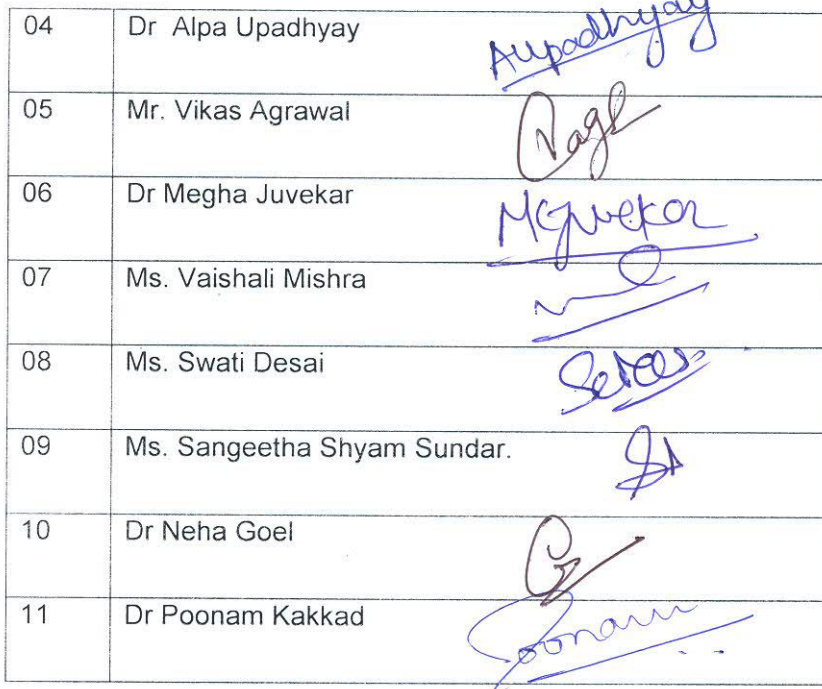 04 Dr Alpa Upadhyay AUpadhyay
05 Mr. Vikas Agrawal
06 Dr Megha Juvekar MGJuvekar
07 Ms. Vaishali Mishra
08 Ms. Swati Desai
09 Ms. Sangeetha Shyam Sundar.
10 Dr Neha Goel
11 Dr Poonam Kakkad Poonam